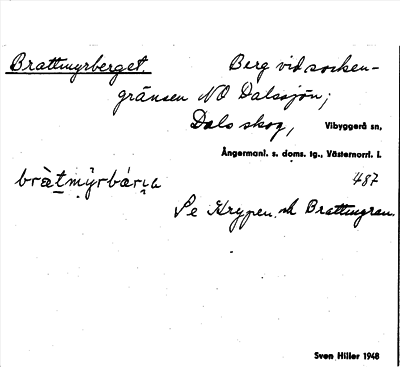 Brattmyrberget Berg vid socken-
gränsen NO Dalssjön;
Dals skog, Vibyggerå sn,
Ångermanl. s. doms. tg., Västernorrl. l.
487
Se Krypen och Brattmyran.
Sven Hiller 1948